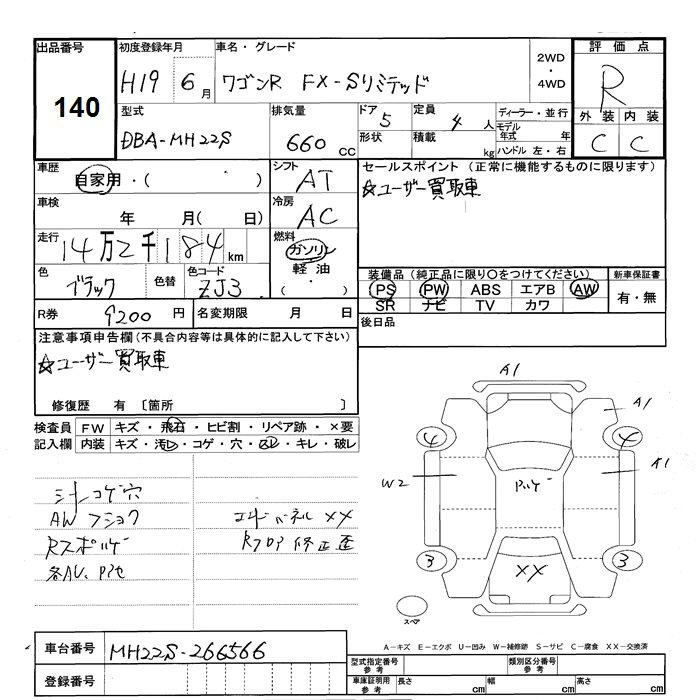 出品番号
140
初度登録年月
H19 6月
車名・グレード
ワゴンR FX-Sリミテッド
2WD
・
4WD
評価点
R
型式
DBA-MH22S
排気量
660 cc
ドア
5
定員
4人
形状
積載
kg
ディーラー・並行
モデル
年式 年
ハンドル 左・右
外装 内装
C C
車歴
自家用・( ・ )
シフト
AT
セールスポイント (正常に機能するものに限ります)
☆ユーザー買取車
車検
年 月( 日)
冷房
AC
走行
14万2千184km
燃料
ガソリン
軽油
( ・ )
色
ブラック
色替
色コード
ZJ3
装備品(純正品に限り○をつけてください)
新車保証書
PS PW ABS エアB AW
SR ナビ TV カワ
有・無
R券
9200円
名変期限 月 日
後日品
注意事項申告欄(不具合内容等は具体的に記入して下さい)
☆ユーザー買取車
修復歴 有 〔箇所 〕
検査員
記入欄
FW キズ・飛石・ヒビ割・リペア跡・×要
内装 キズ・汚レ・コゲ・穴・スレ・キレ・破レ
シートコゲ穴
AW フショク
各AU、PPセ
エンドパネル XX
Rフロア 修正歪
A1
A1
4
4
W2
A1
3
3
XX
スペア
A-キズ E-エクボ U-凹み W-補修跡 S-サビ C-腐食 XX-交換済
車台番号
MH22S-266566
登録番号
型式指定番号
参考
類別区分番号
参考
車庫証明用
参考
長さ cm
幅 cm
高さ cm